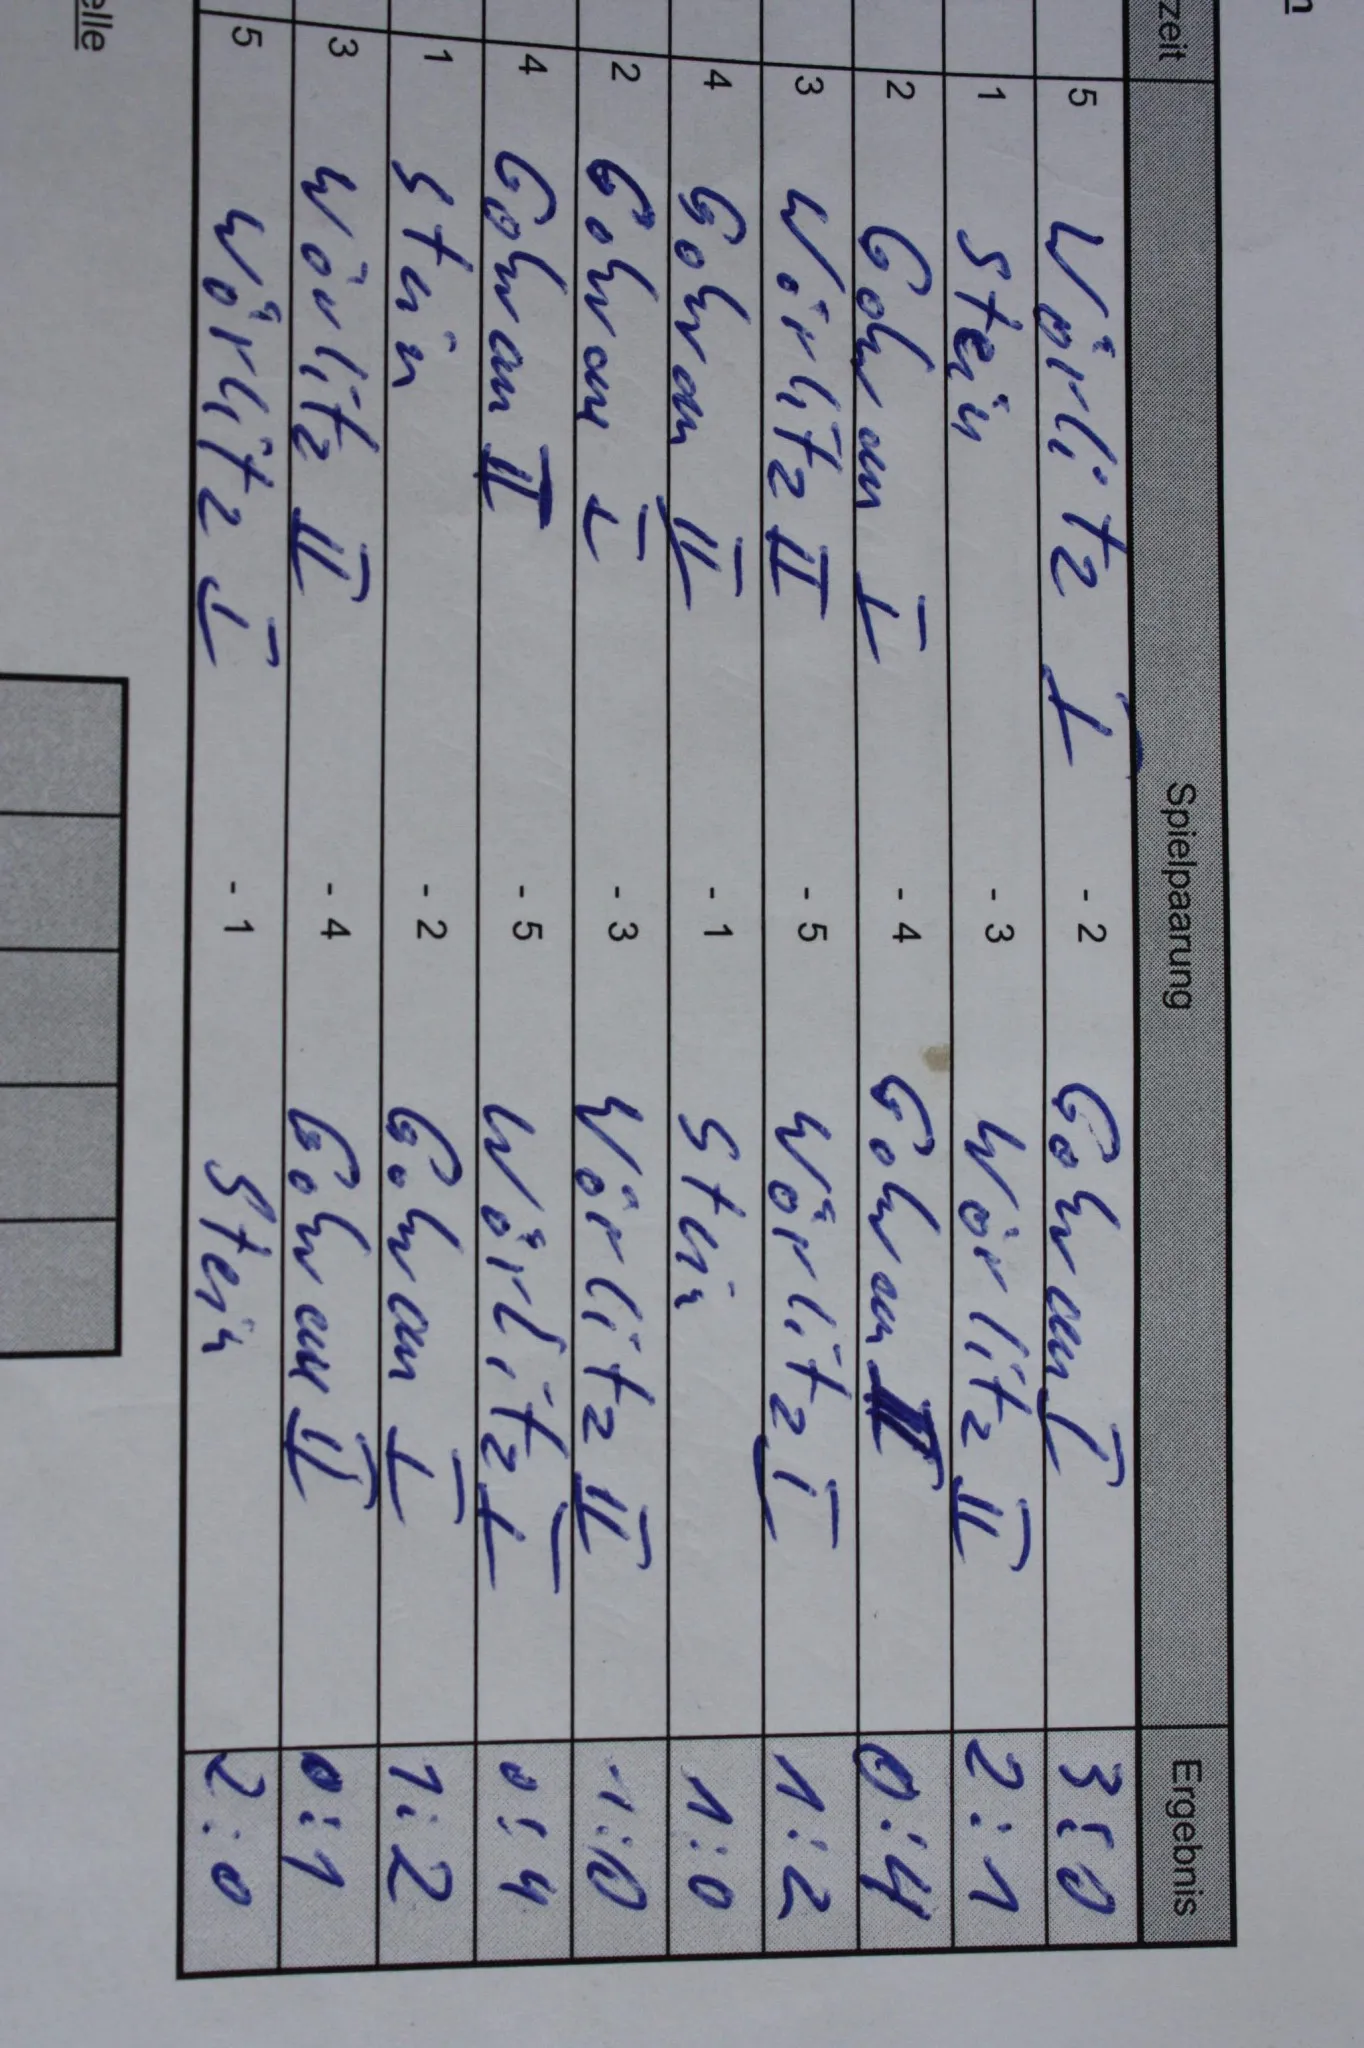 zeit Spielpaarung Ergebnis
5 Wörlitz I - 2 Gohrau I 3:0
1 Stein - 3 Wörlitz II 2:1
2 Gohrau I - 4 Gohrau II 0:4
3 Wörlitz II - 5 Wörlitz I 1:2
4 Gohrau II - 1 Stein 1:0
2 Gohrau I - 3 Wörlitz II 1:0
4 Gohrau II - 5 Wörlitz I 0:4
1 Stein - 2 Gohrau I 1:2
3 Wörlitz II - 4 Gohrau II 0:1
5 Wörlitz I - 1 Stein 2:0
elle